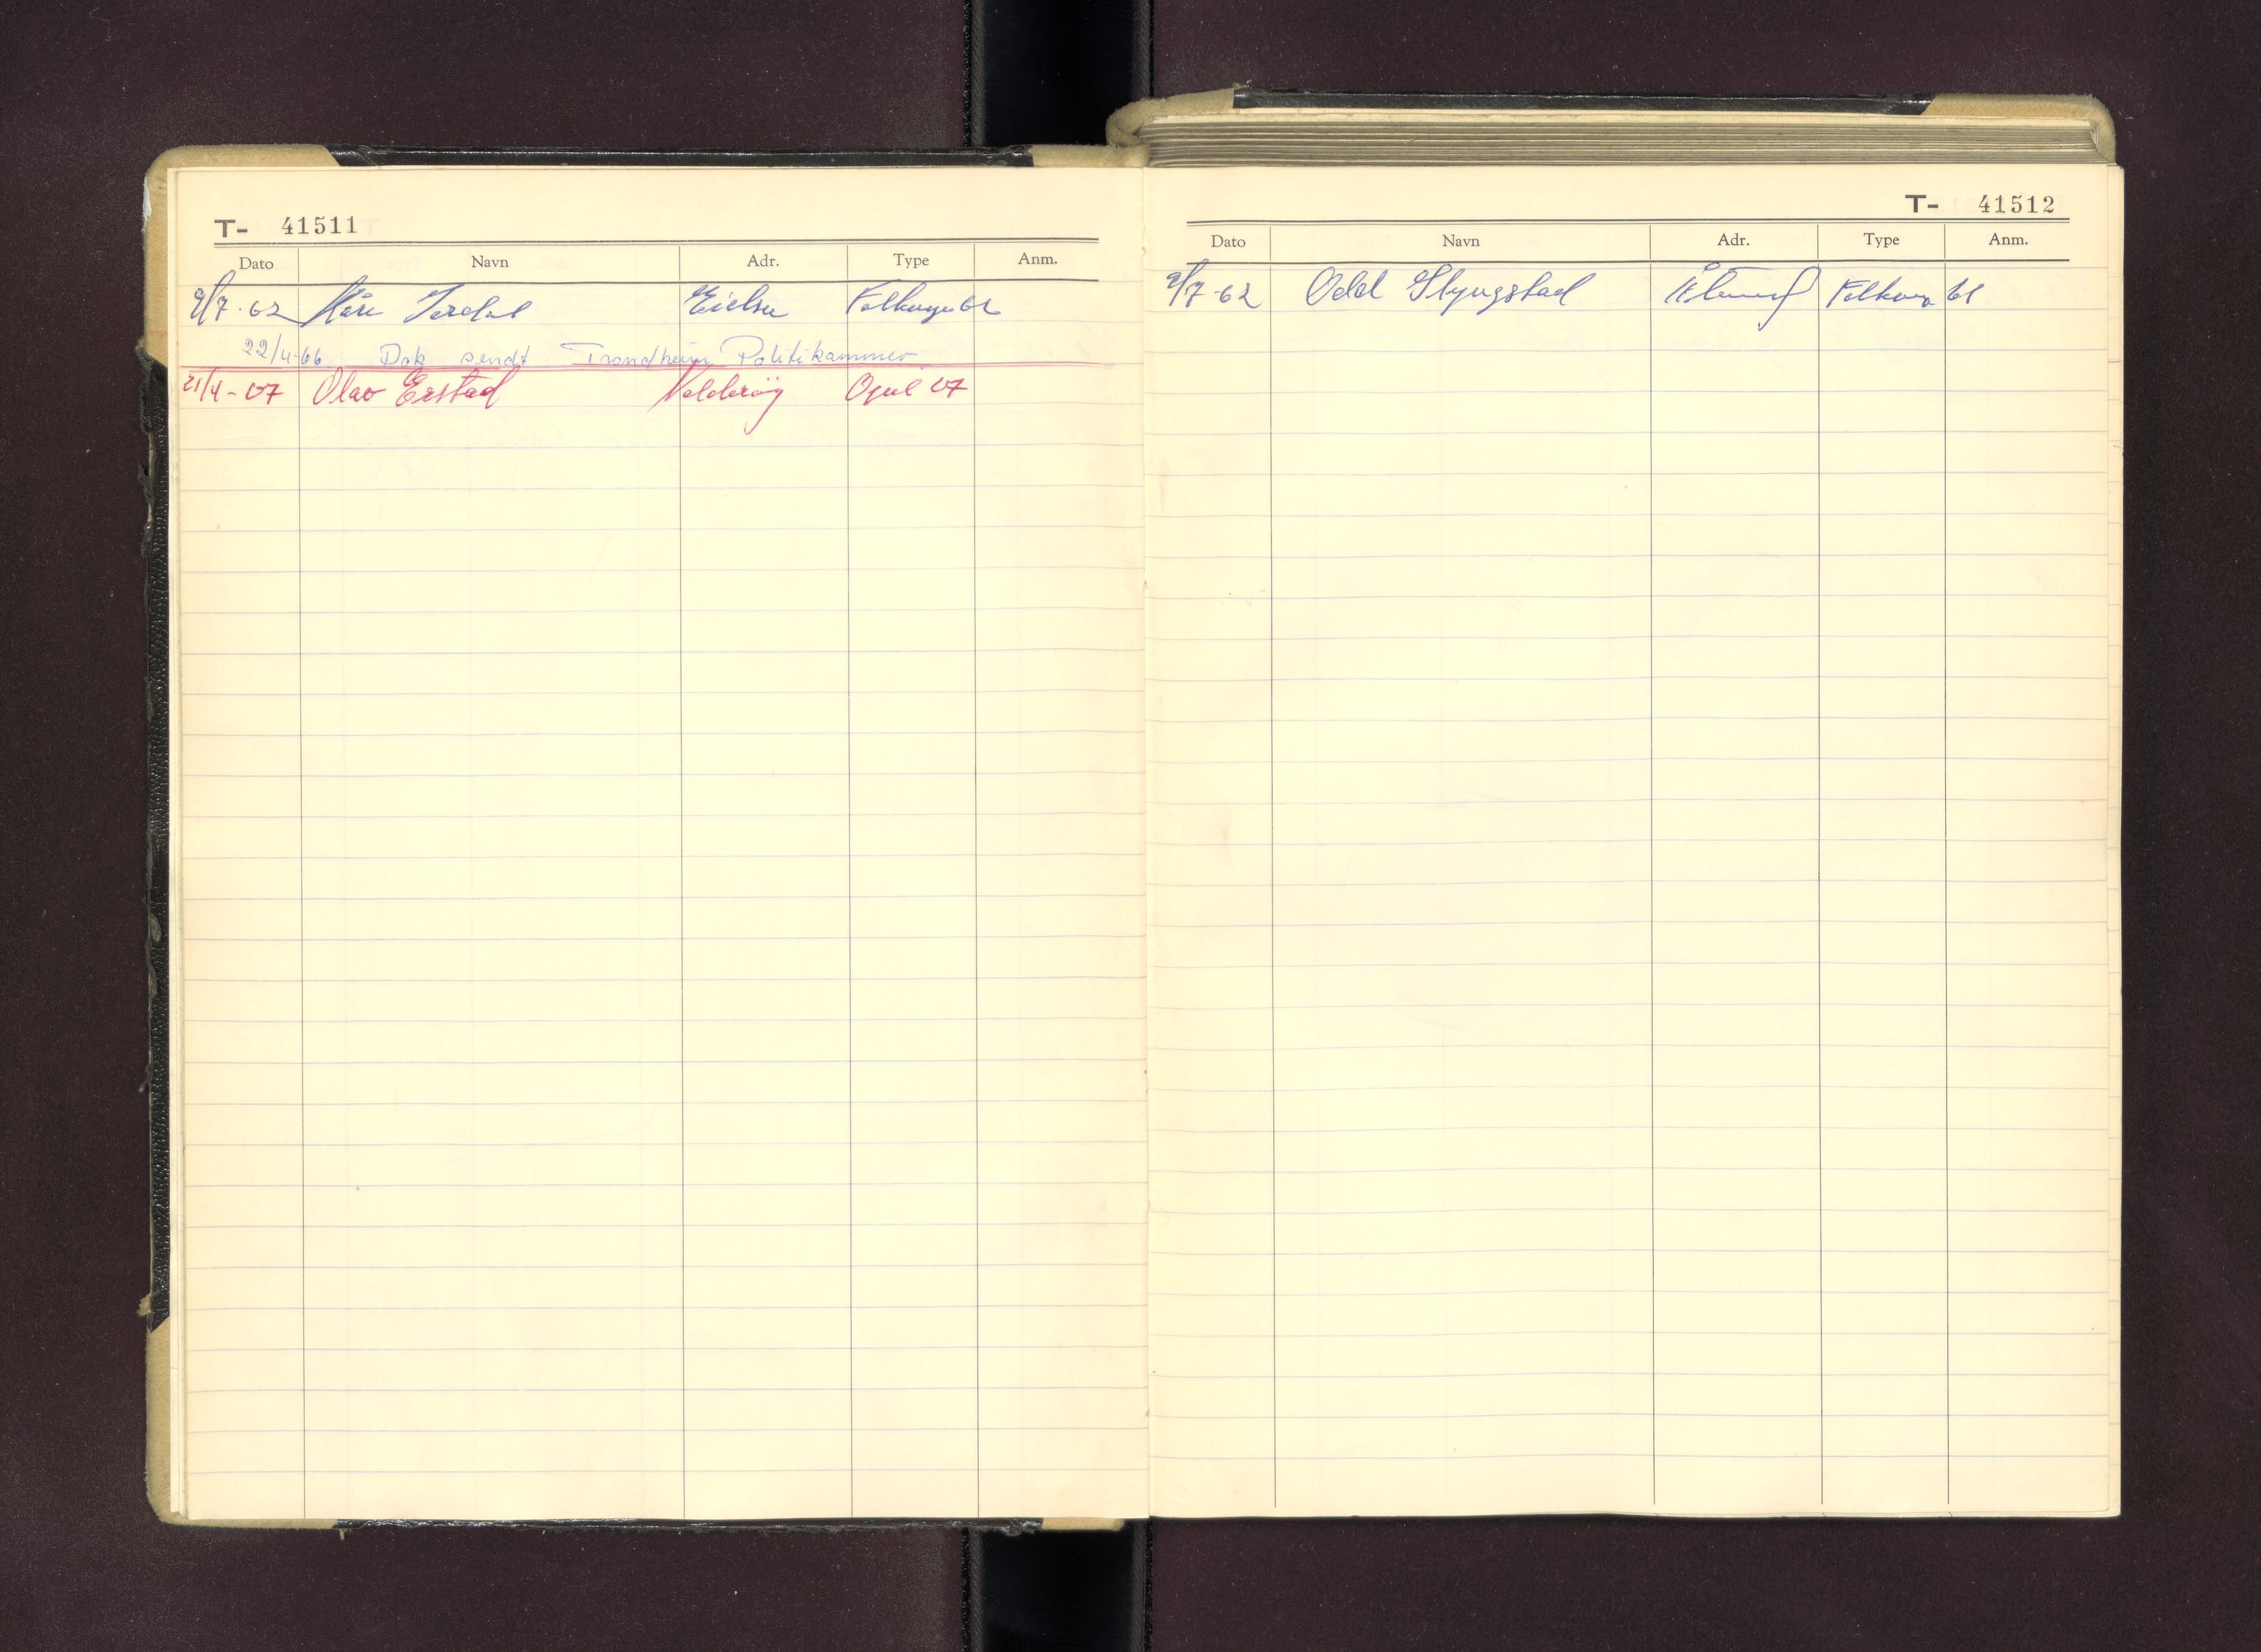 T- 41511
Dato Navn Adr. Type Anm.
9/7-62 Kåre Folkvogn 62
22/4-66 Dok sendt Trondheim Politikammer
21/4-67 Olav Erstad Valderøy Opel 67
T- 41512
Dato Navn Adr. Type Anm.
9/7-62 Odd Slyngstad Ålesund Folkvogn 61